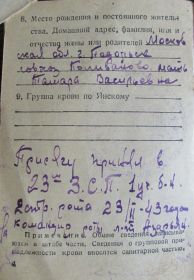 8. Место рождения и постоянного житель-
ства. Домашний адрес, фамилия, имя и
отчество жены или родителей Москов
ская обл. г. Подольск
мать
Тамара Васильевна
9. Группа крови по Янскому
Присягу принял в
23ем З.С.П. 1 уч. б-н.
2 рота 23/II-43 года
Командир роты л-нт
Примечание. Общие сведения заполняются
в штабе части. Сведения о групповой при-
надлежности крови вносятся санитарной частью.